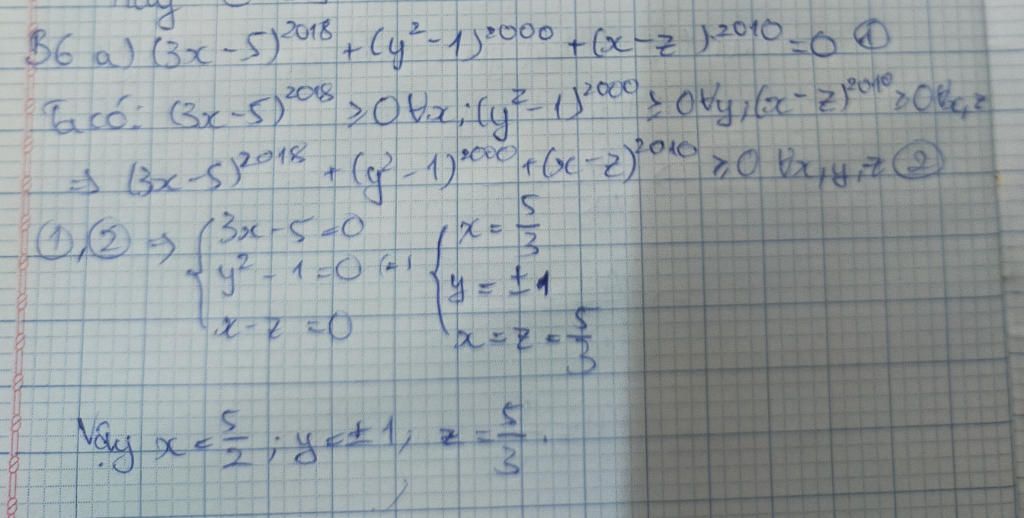 B6 a) (3x-5)^2018 + (y²-1)^2000 + (x-z)^2010 = 0 ①
Ta có: (3x-5)^2018 ≥ 0 ∀x; (y²-1)^2000 ≥ 0 ∀y; (x-z)^2010 ≥ 0 ∀x,z
⇒ (3x-5)^2018 + (y²-1)^2000 + (x-z)^2010 ≥ 0 ∀x,y,z ②
①,② ⇒ { 3x-5=0 ; y²-1=0 ; x-z=0 ⇔ { x=5/3 ; y=±1 ; x=z=5/3
Vậy x=5/2; y=±1; z=5/3.